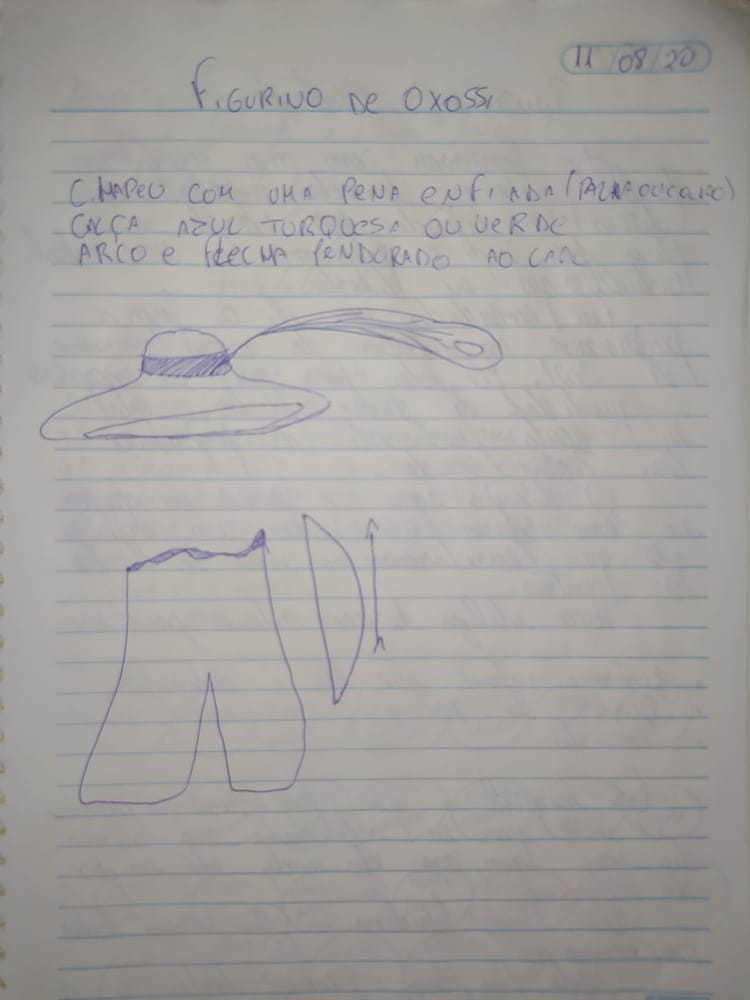 11/08/20
FIGURINO DE OXOSSI
CHAPEU COM UMA PENA ENFIADA
CALÇA AZUL TURQUESA OU VERDE
ARCO E FLECHA PENDURADO AO